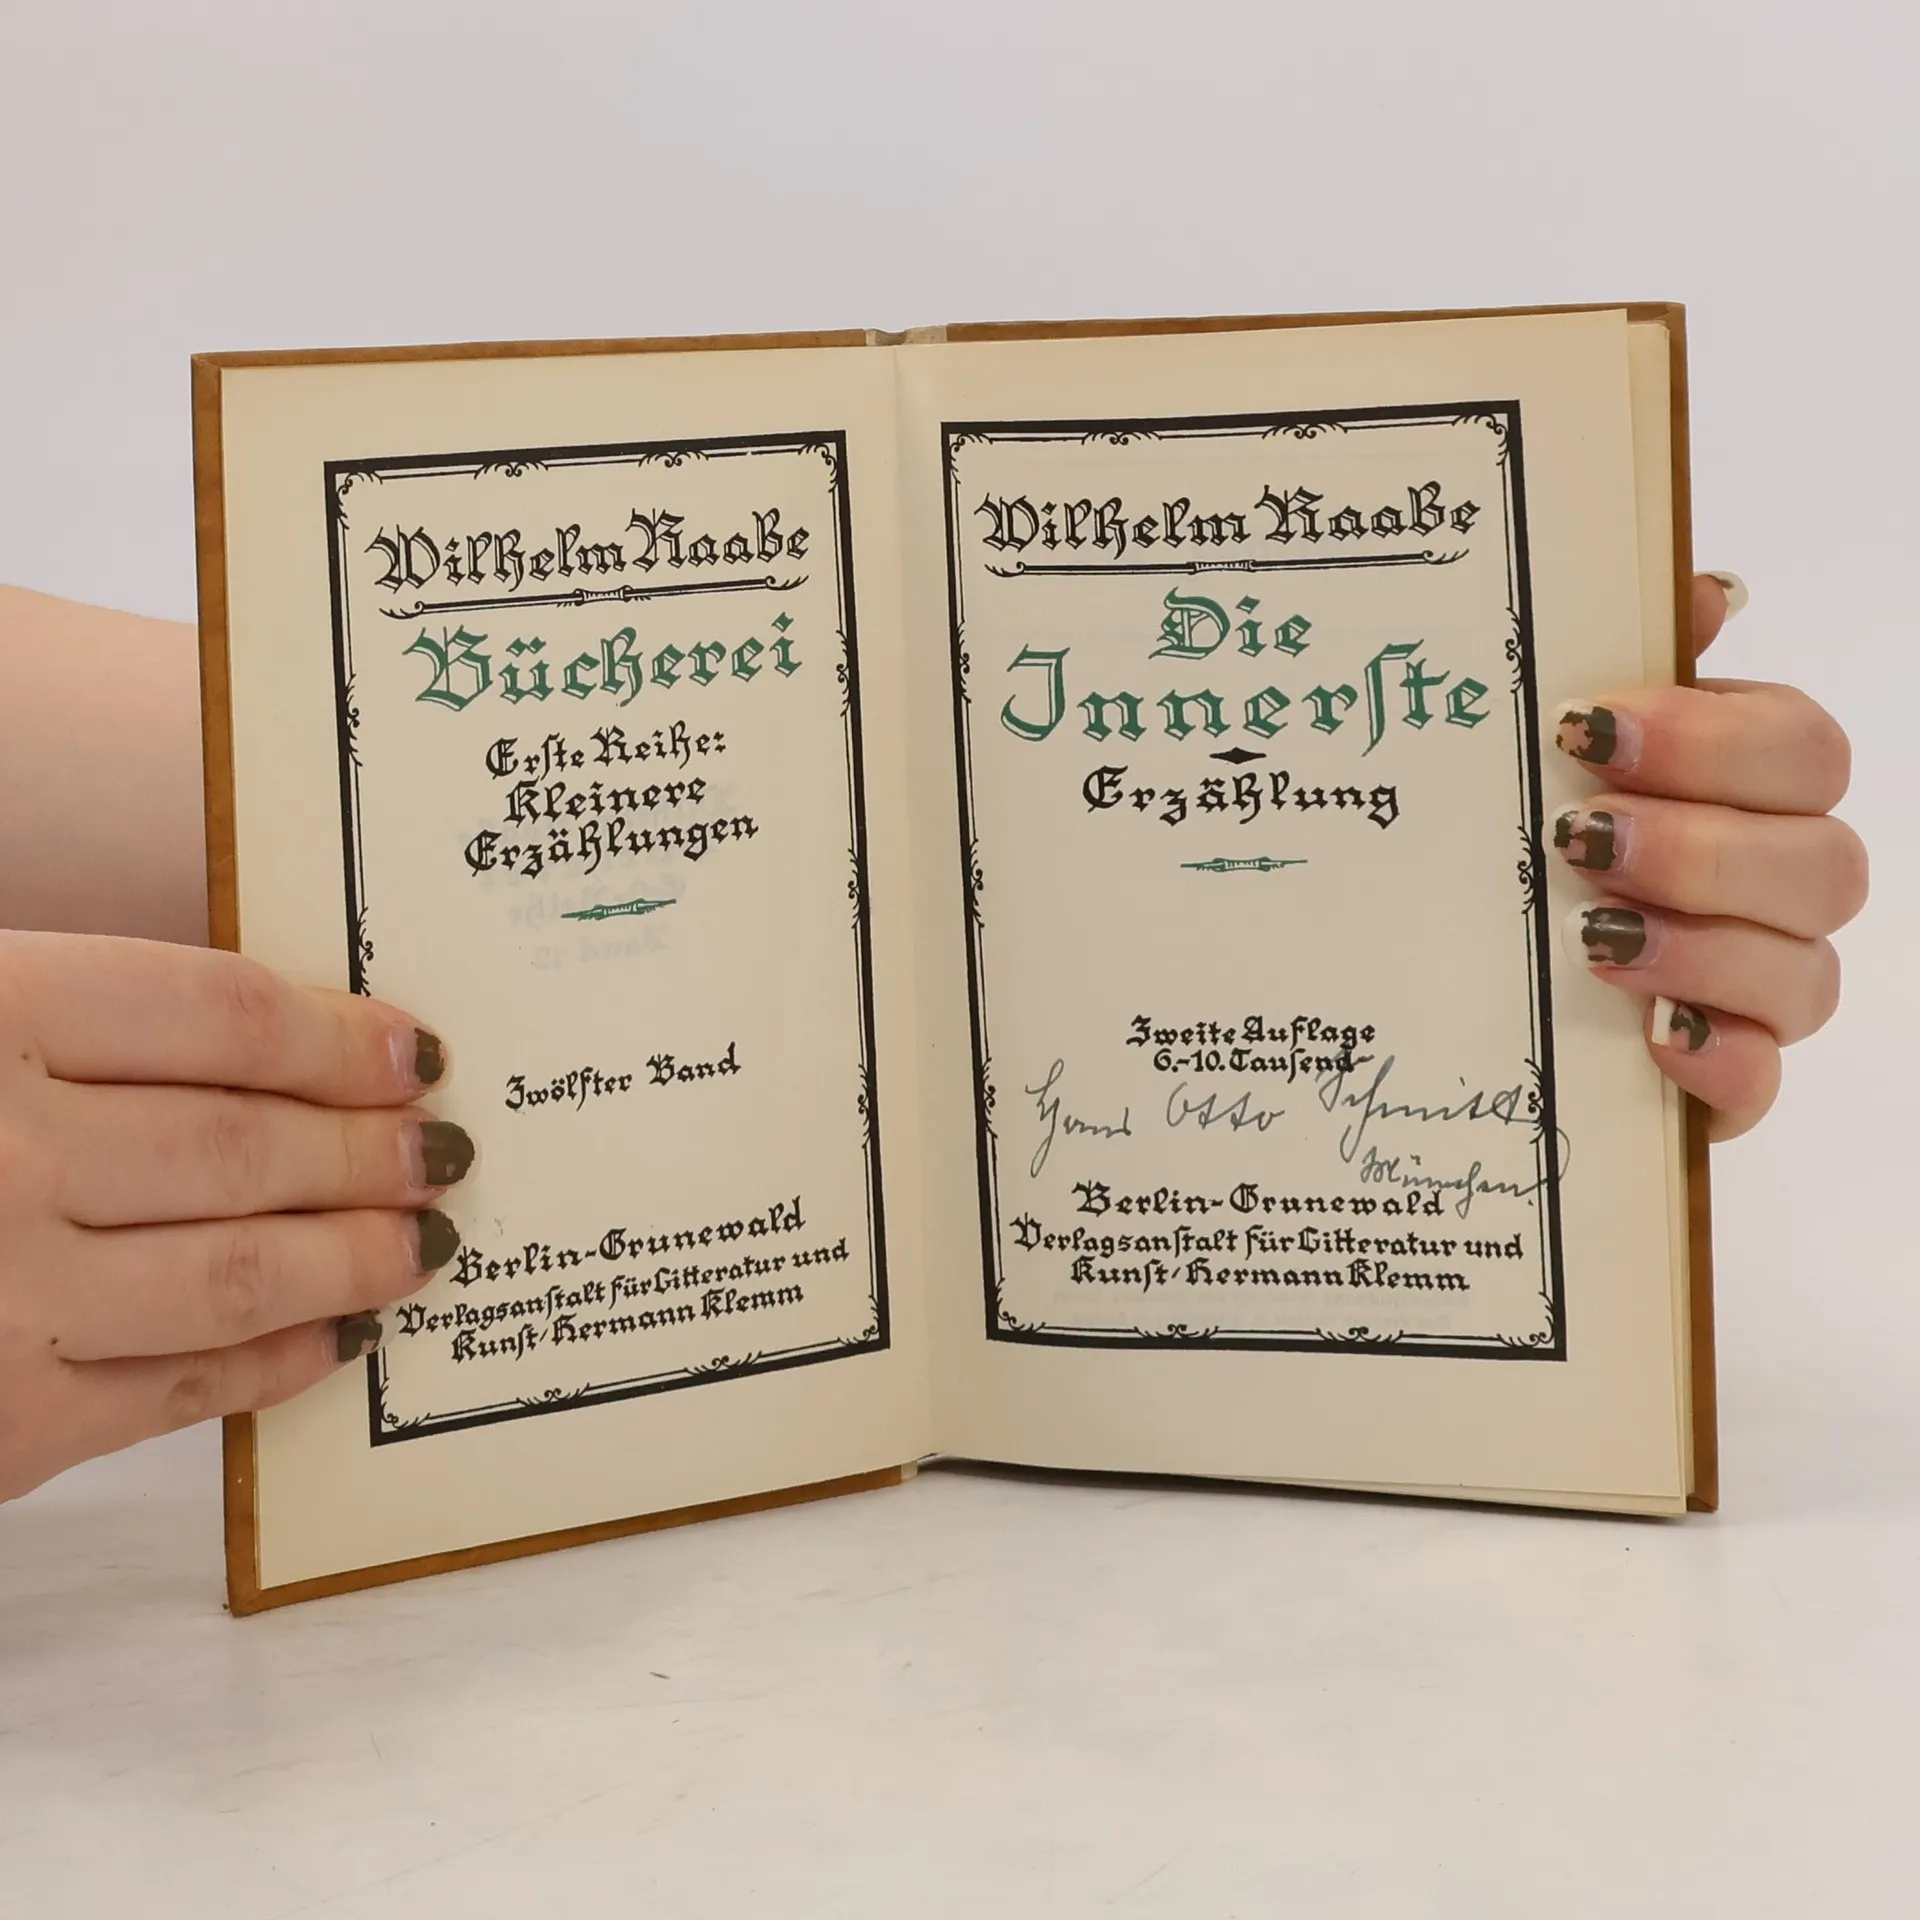 Wilhelm Raabe
Bücherei
Erste Reihe:
Kleinere
Erzählungen
Zwölfter Band
Berlin-Grunewald
Verlagsanstalt für Litteratur und
Kunst/Hermann Klemm
Wilhelm Raabe
Die
Innerste
Erzählung
Zweite Auflage
6.-10. Tausend
Hans Otto Schmitt
München
Berlin-Grunewald
Verlagsanstalt für Litteratur und
Kunst/Hermann Klemm